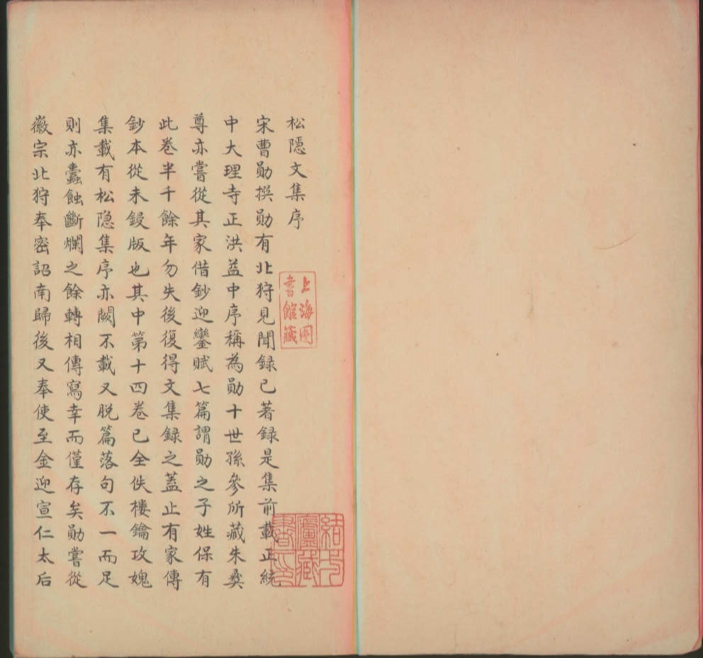 松隱文集序
宋曹勛撰勛有北狩見聞録已著録是集前載正統
中大理寺正洪益中序稱為勛十世孫參所藏朱彝
尊亦嘗從其家借鈔迎鑾賦七篇謂勛之子姓保有
此卷半千餘年勿失後復得文集録之蓋止有家傳
鈔本從未鋟版也其中第十四卷已全佚樓鑰攻媿
集載有松隐集序亦闕不載又脱篇落句不一而足
則亦蠹蝕斷爛之餘轉相傳寫幸而僅存矣勛嘗從
徽宗北狩奉密詔南歸後又奉使至金迎宣仁太后
上海圖
書館藏
結一
廬藏
書印